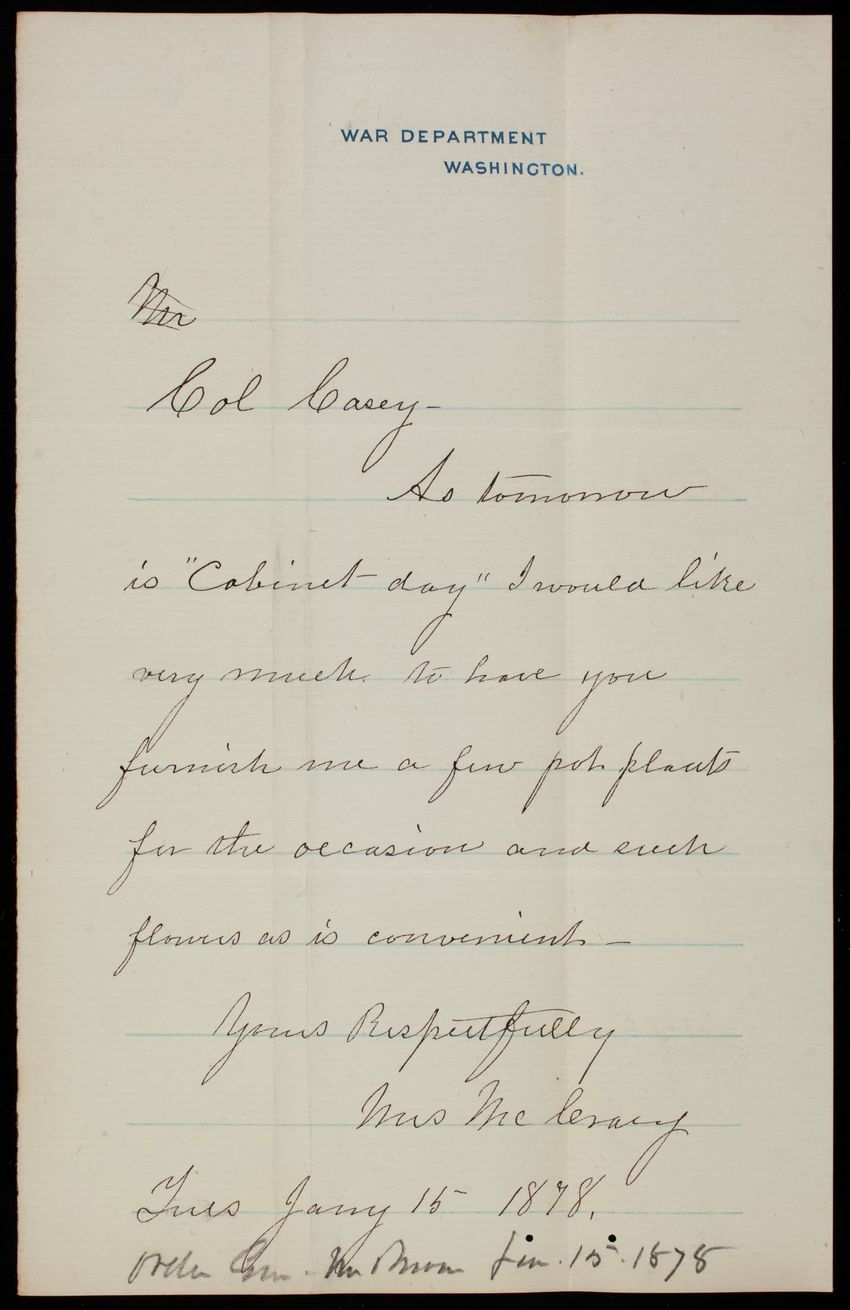 WAR DEPARTMENT
WASHINGTON.
Mr
Col Casey-
As tomorrow
is "Cabinet day" I would like
very much to have you
furnish me a few pot plants
for the occasion and such
flowers as is convenient-
Yours Respectfully
Mrs McCrary
Tues Jany 15 1878.
Jan. 15. 1878